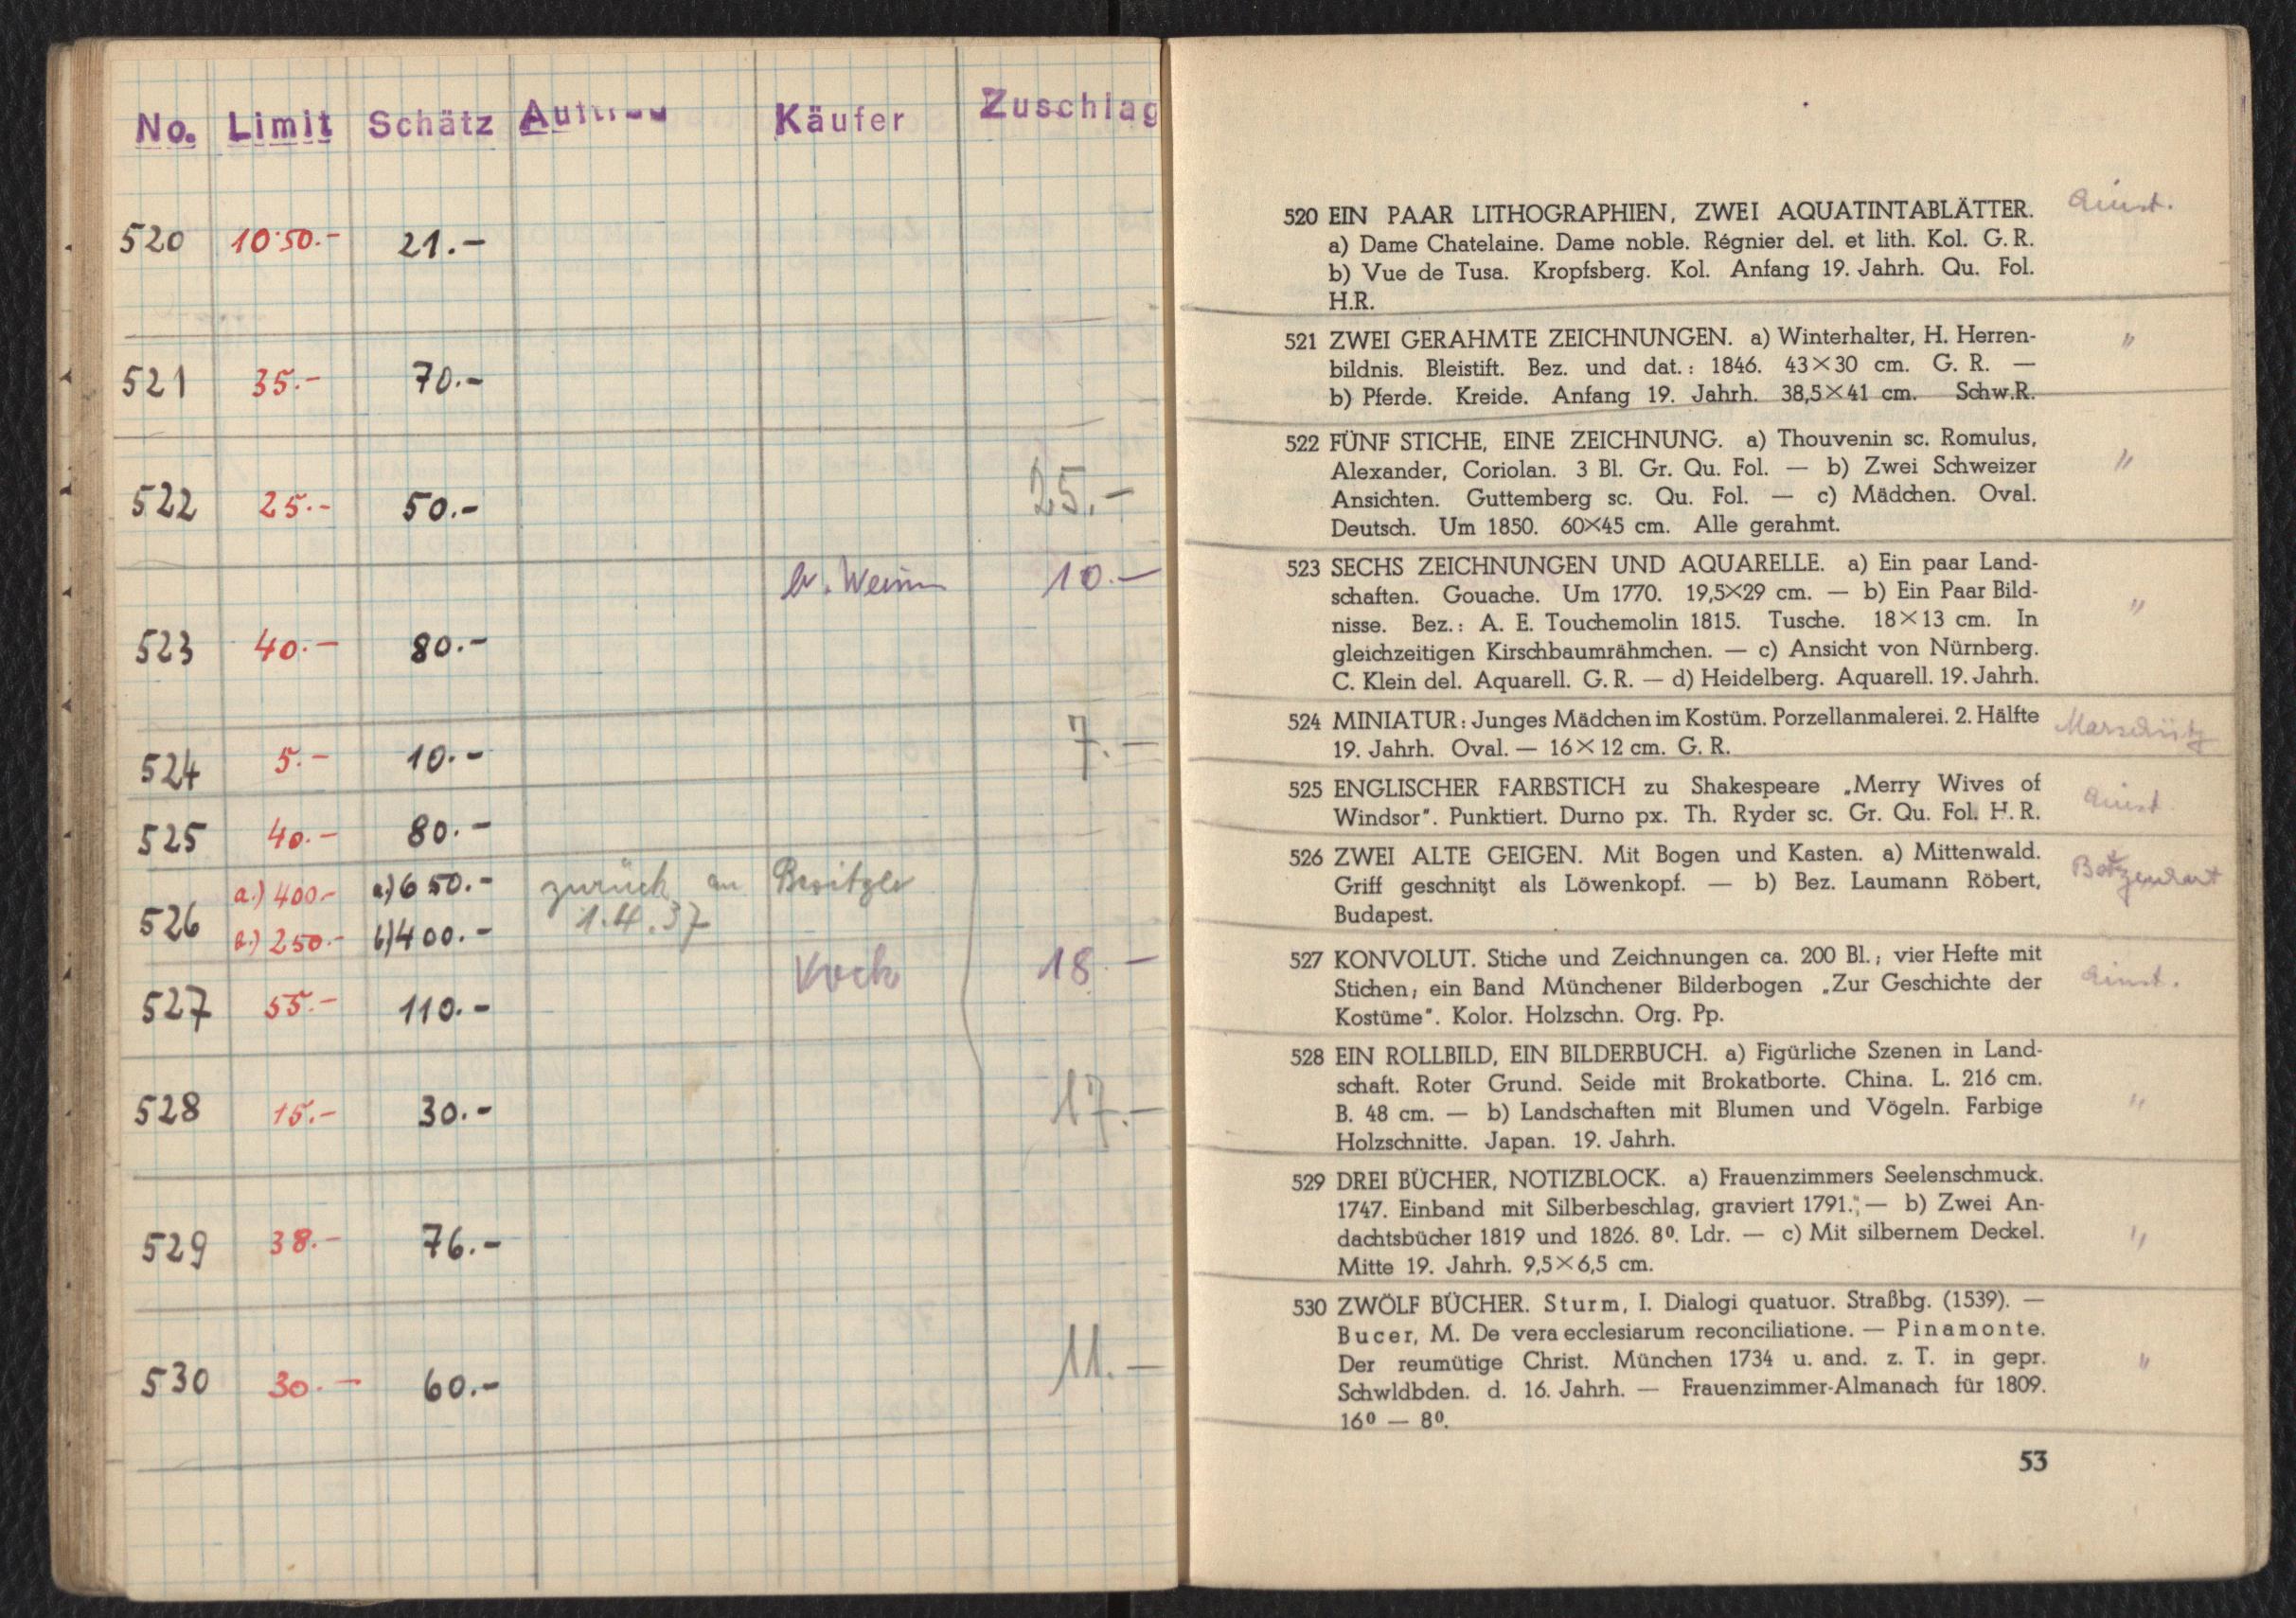 No. Limit Schätz Käufer Zuschlag
520 10.50.- 21.-
521 35.- 70.-
522 25.- 50.- 25.-
10.-
523 40.- 80.-
524 5.- 10.- 7.-
525 40.- 80.-
526 a.) 400.- a.) 650.- zurück an Besitzer
b.) 250.- b) 400.- 1.4.37
Koch 18.-
527 55.- 110.-
528 15.- 30.- 17.-
529 38.- 76.-
530 30.- 60.- 11.-
520 EIN PAAR LITHOGRAPHIEN, ZWEI AQUATINTABLÄTTER.
a) Dame Chatelaine. Dame noble. Régnier del. et lith. Kol. G. R.
b) Vue de Tusa. Kropfsberg. Kol. Anfang 19. Jahrh. Qu. Fol.
H.R.
521 ZWEI GERAHMTE ZEICHNUNGEN. a) Winterhalter, H. Herren- "
bildnis. Bleistift. Bez. und dat.: 1846. 43×30 cm. G. R. —
b) Pferde. Kreide. Anfang 19. Jahrh. 38,5×41 cm. Schw.R.
522 FÜNF STICHE, EINE ZEICHNUNG. a) Thouvenin sc. Romulus,
Alexander, Coriolan. 3 Bl. Gr. Qu. Fol. — b) Zwei Schweizer "
Ansichten. Guttemberg sc. Qu. Fol. — c) Mädchen. Oval.
Deutsch. Um 1850. 60×45 cm. Alle gerahmt.
523 SECHS ZEICHNUNGEN UND AQUARELLE. a) Ein paar Land-
schaften. Gouache. Um 1770. 19,5×29 cm. — b) Ein Paar Bild- "
nisse. Bez.: A. E. Touchemolin 1815. Tusche. 18×13 cm. In
gleichzeitigen Kirschbaumrähmchen. — c) Ansicht von Nürnberg.
C. Klein del. Aquarell. G. R. — d) Heidelberg. Aquarell. 19. Jahrh.
524 MINIATUR: Junges Mädchen im Kostüm. Porzellanmalerei. 2. Hälfte Marschütz
19. Jahrh. Oval. — 16×12 cm. G. R.
525 ENGLISCHER FARBSTICH zu Shakespeare „Merry Wives of
Windsor". Punktiert. Durno px. Th. Ryder sc. Gr. Qu. Fol. H. R.
526 ZWEI ALTE GEIGEN. Mit Bogen und Kasten. a) Mittenwald.
Griff geschnitzt als Löwenkopf. — b) Bez. Laumann Röbert, Botzenhart
Budapest.
527 KONVOLUT. Stiche und Zeichnungen ca. 200 Bl.; vier Hefte mit
Stichen; ein Band Münchener Bilderbogen „Zur Geschichte der
Kostüme". Kolor. Holzschn. Org. Pp.
528 EIN ROLLBILD, EIN BILDERBUCH. a) Figürliche Szenen in Land-
schaft. Roter Grund. Seide mit Brokatborte. China. L. 216 cm.
B. 48 cm. — b) Landschaften mit Blumen und Vögeln. Farbige "
Holzschnitte. Japan. 19. Jahrh.
529 DREI BÜCHER, NOTIZBLOCK. a) Frauenzimmers Seelenschmuck.
1747. Einband mit Silberbeschlag, graviert 1791. — b) Zwei An-
dachtsbücher 1819 und 1826. 8⁰. Ldr. — c) Mit silbernem Deckel. "
Mitte 19. Jahrh. 9,5×6,5 cm.
530 ZWÖLF BÜCHER. Sturm, I. Dialogi quatuor. Straßbg. (1539). —
Bucer, M. De vera ecclesiarum reconciliatione. — Pinamonte.
Der reumütige Christ. München 1734 u. and. z. T. in gepr. "
Schwldbden. d. 16. Jahrh. — Frauenzimmer-Almanach für 1809.
16⁰ — 8⁰.
53